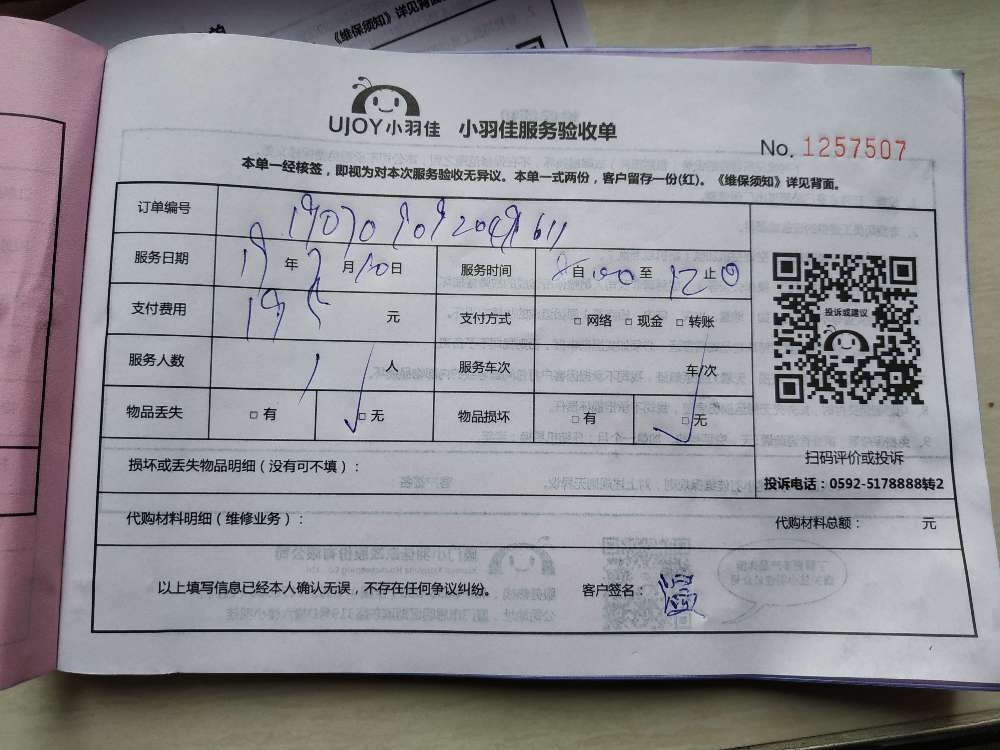 《维保须知》详见背面
UJOY小羽佳 小羽佳服务验收单
No. 1257507
本单一经核签，即视为对本次服务验收无异议。本单一式两份，客户留存一份(红)。《维保须知》详见背面。
订单编号
服务日期 19年7月10日 服务时间 自 至 止
支付费用 195 元 支付方式 □ 网络 □ 现金 □ 转账
投诉或建议
服务人数 1 人 服务车次 车/次
物品丢失 □ 有 □ 无 物品损坏 □ 有 □ 无
扫码评价或投诉
损坏或丢失物品明细（没有可不填）：
投诉电话：0592-5178888转2
代购材料明细（维修业务）： 代购材料总额： 元
以上填写信息已经本人确认无误，不存在任何争议纠纷。 客户签名：